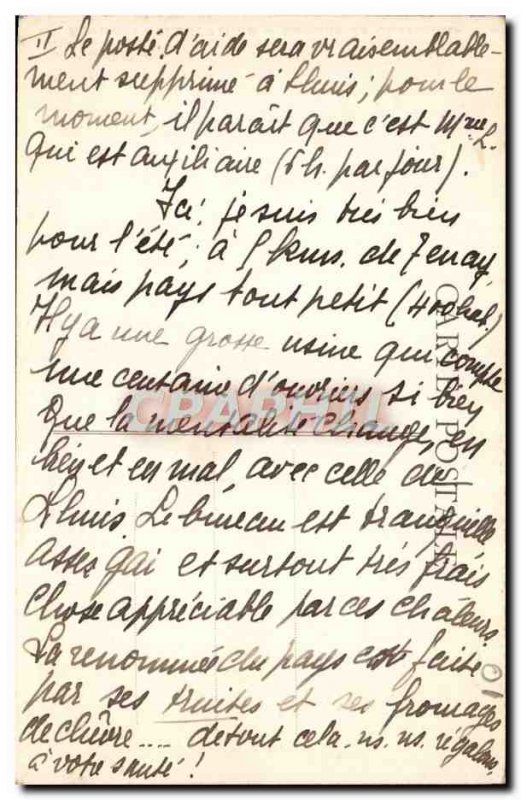 II Le poste d'aide sera vraisemblable-
ment supprimé à Lhuis; pour le
moment, il paraît que c'est Mme L.
qui est auxiliaire (5 h. par jour).
Ici, je suis très bien
pour l'été; à 5 kms. de Tenay,
mais pays tout petit (400 hab.)
Il y a une grosse usine qui compte
une centaine d'ouvriers si bien
que la mentalité change, en
bien et en mal, avec celle de
Lhuis. Le bureau est tranquille
assez gai et surtout très frais
chose appréciable par ces chaleurs.
La renommée du pays est faite
par ses truites et ses fromages
de chèvre .... de tout cela ns. ns. régalons,
à votre santé!
CARTE POSTALE
CPAPHIL